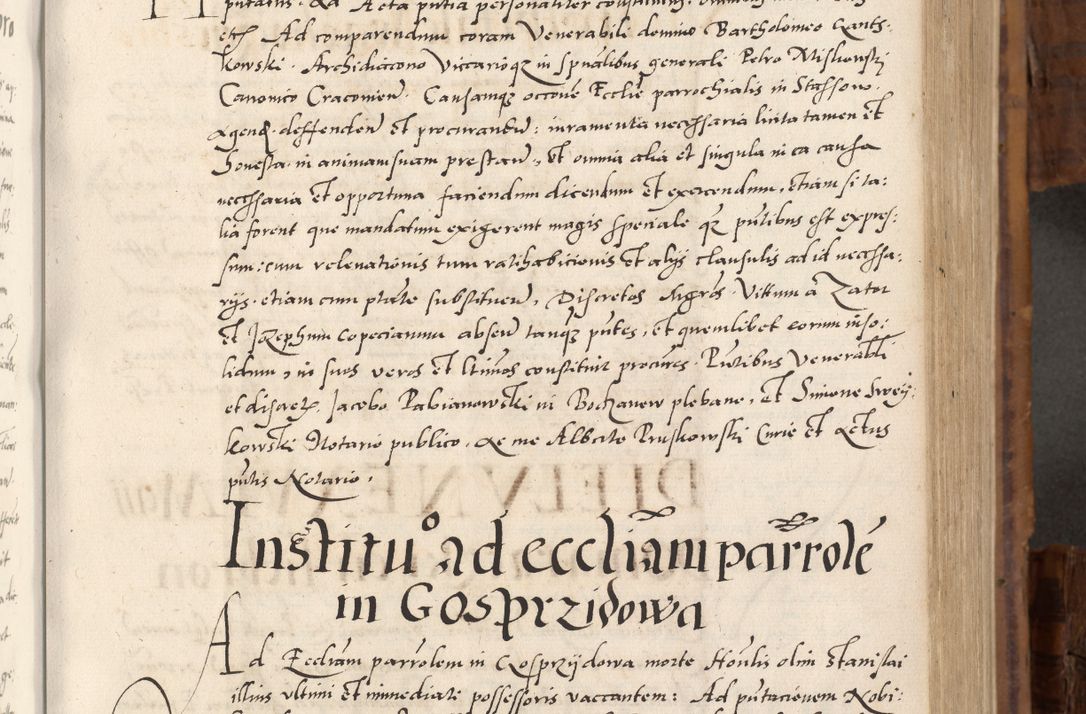 etc Ad comparendum coram Venerabili domino Bartholomeo Gants-
kowski Archidiacono Viccarioque in spualibus generali Petro Miskowski
Canonico Cracovien. Causamque occoe Ecclie parrochialis in Stassow.
Agend. deffenden et procurandum: iuramenta necessaria licita tamen et
honesta in animam suam prestan, et omnia alia et singula in ea causa
necessaria et opportuna faciendum dicendum et exercendum, etiam si ta:
lia forent que mandatum exigerent magis speciale q3 putibus est expres:
sum: cum relevationis tum ratihabicionis et alijs clausulis ad id necessa:
rijs etiam cum ptate substituen, Discretos Mgros Vittum a Zator
et Jozephum Copecianum absen tanq3 pntes, et quemlibet eorum inso:
lidum, in suos veros et ltimos constituit procures. Pntibus Venerabili
et discret. Jacobo Pabianowski in Bochanew plebano, et Simone Swey:
kowski Notario publico. Ae me Alberto Pruskowski Curie et Actus
putis Notario.
Institu° ad eccliam parrolem
in Gosprzidowa
Ad Eccliam parrolem in Gosprzijdowa morte Honlis olim Stanislai
illius ultimi et immediate possessoris vaccantem: Ad putacionem Nobi: